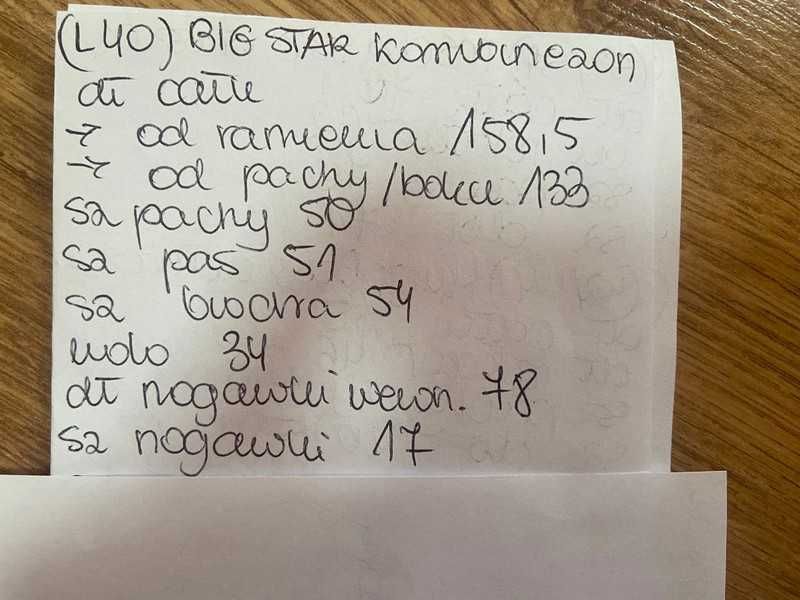 (L40) BIG STAR Kombinezon
dł całk
→ od ramienia 158,5
→ od pachy/boku 133
sz pachy 50
sz pas 51
sz biodra 54
udo 34
dł nogawki wewn. 78
sz nogawki 17